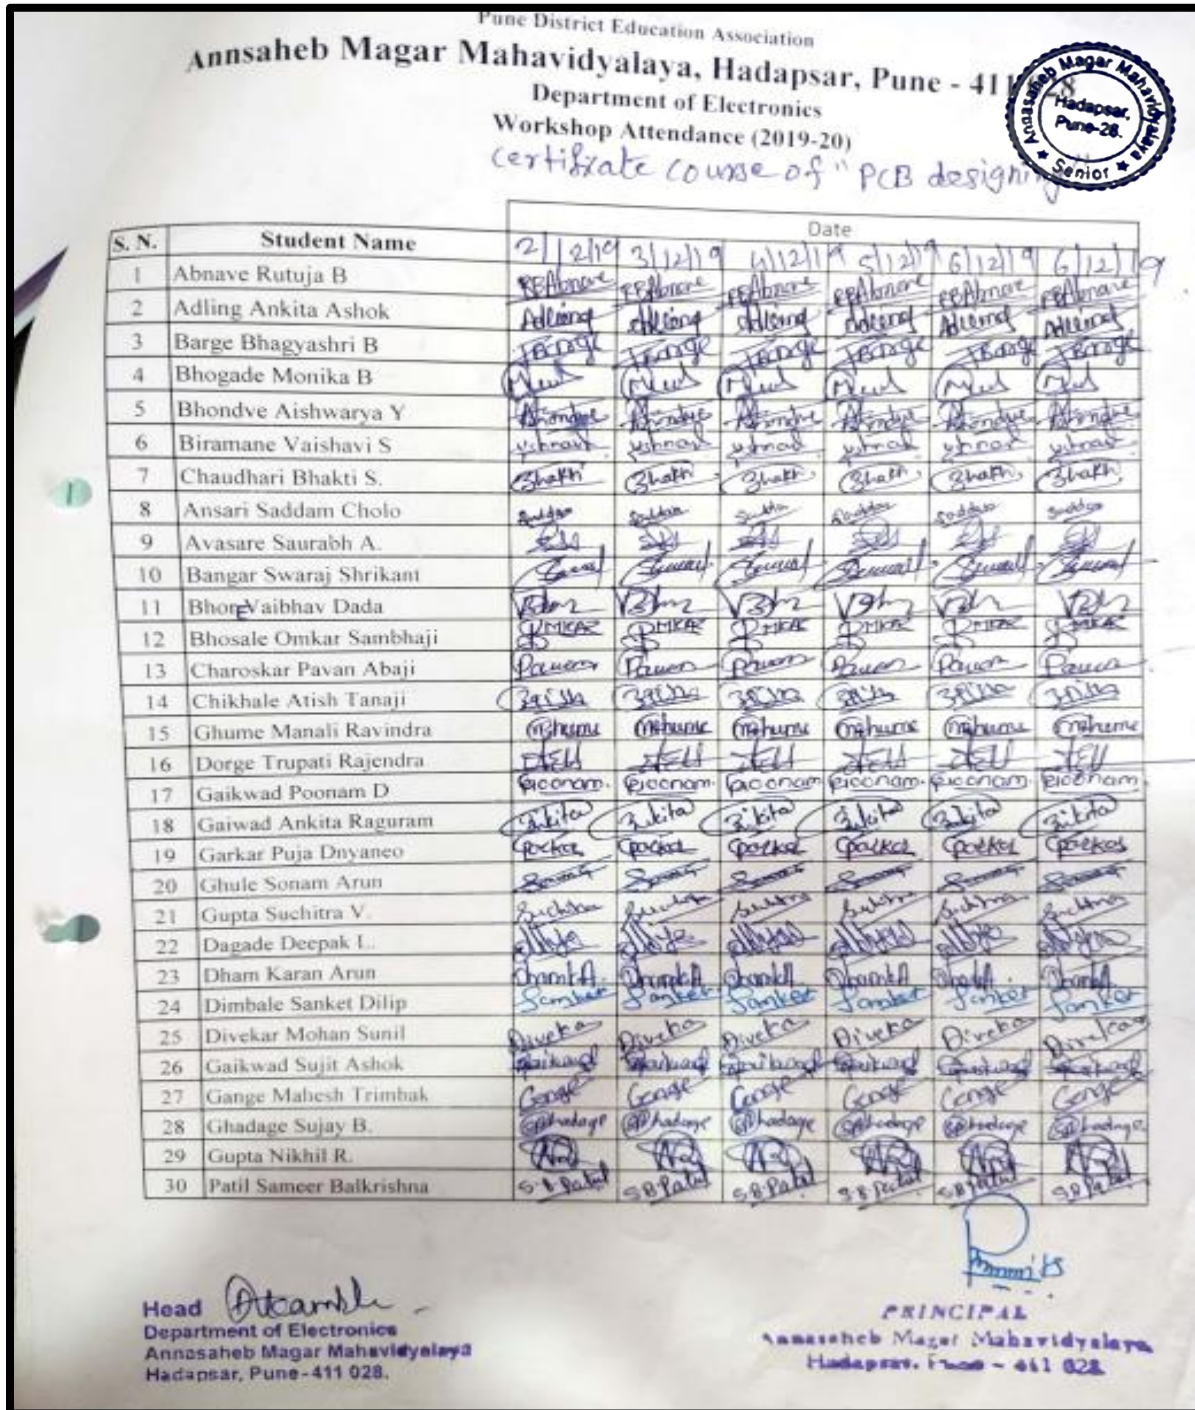 Pune District Education Association
Annsaheb Magar Mahavidyalaya, Hadapsar, Pune - 411 028
Department of Electronics
Workshop Attendance (2019-20)
certifixate course of "PCB designing"
Annasaheb Magar Mahavidyalaya
Hadapsar,
Pune-28.
★ Senior ★
S. N. Student Name Date
2/12/19 3/12/19 4/12/19 5/12/19 6/12/19 6/12/19
1 Abnave Rutuja B RBAbnave RBAbnave RBAbnave RBAbnave RBAbnave RBAbnave
2 Adling Ankita Ashok Adling Adling Adling Adling Adling Adling
3 Barge Bhagyashri B Barge Barge Barge Barge Barge Barge
4 Bhogade Monika B
5 Bhondve Aishwarya Y Bhondve Bhondve Bhondve Bhondve Bhondve Bhondve
6 Biramane Vaishavi S
7 Chaudhari Bhakti S. Bhakti Bhakti Bhakti Bhakti Bhakti Bhakti
8 Ansari Saddam Cholo Saddam Saddam Saddam Saddam Saddam Saddam
9 Avasare Saurabh A.
10 Bangar Swaraj Shrikant
11 BhorE Vaibhav Dada
12 Bhosale Omkar Sambhaji OMKAR OMKAR OMKAR OMKAR OMKAR OMKAR
13 Charoskar Pavan Abaji Pavan Pavan Pavan Pavan Pavan Pavan
14 Chikhale Atish Tanaji
15 Ghume Manali Ravindra Mghume Mghume Mghume Mghume Mghume Mghume
16 Dorge Trupati Rajendra
17 Gaikwad Poonam D Poonam. Poonam. Poonam Poonam. Poonam. Poonam
18 Gaiwad Ankita Raguram Ankita Ankita Ankita Ankita Ankita Ankita
19 Garkar Puja Dnyaneo
20 Ghule Sonam Arun
21 Gupta Suchitra V. Suchitra Suchitra Suchitra Suchitra Suchitra Suchitra
22 Dagade Deepak L.
23 Dham Karan Arun DhamKA DhamKA DhamKA DhamKA DhamKA DhamKA
24 Dimbale Sanket Dilip Sanket Sanket Sanket Sanket Sanket Sanket
25 Divekar Mohan Sunil Diveka Diveka Diveka Diveka Diveka Divekar
26 Gaikwad Sujit Ashok Gaikwad Gaikwad Gaikwad Gaikwad Gaikwad Gaikwad
27 Gange Mahesh Trimbak Gange Gange Gange Gange Gange Gange
28 Ghadage Sujay B. SBhadage SBhadage SBhadage SBhadage SBhadage SBhadage
29 Gupta Nikhil R.
30 Patil Sameer Balkrishna S.B Patil SB Patil SB Patil SB Patil SB Patil SB Patil
Head
Department of Electronics
Annasaheb Magar Mahavidyalaya
Hadapsar, Pune-411 028.
PRINCIPAL
Annasaheb Magar Mahavidyalaya
Hadapsar, Pune - 411 028